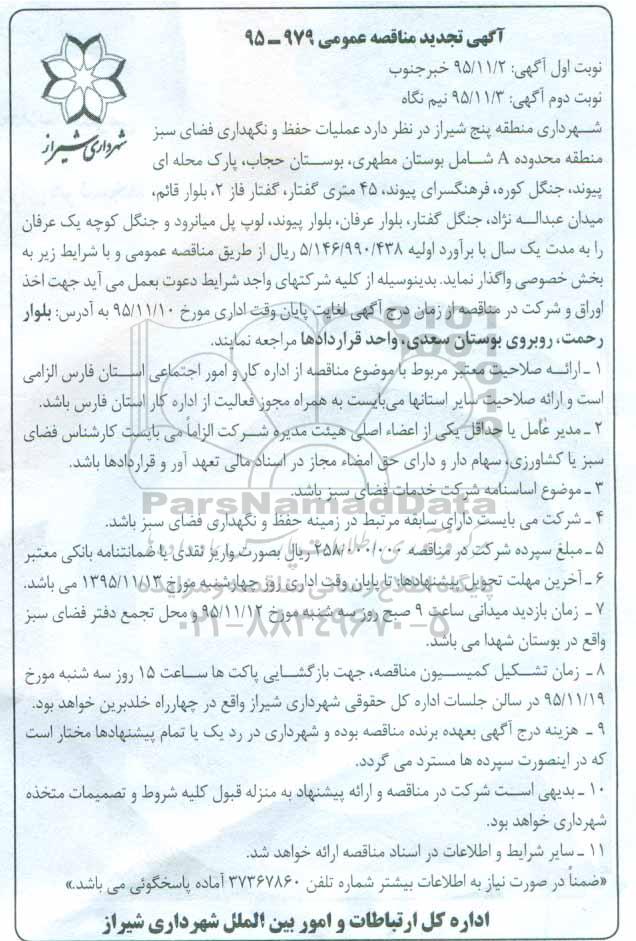 آگهی تجدید مناقصه عمومی ۹۷۹ ــ ۹۵
نوبت اول آگهی: ۹۵/۱۱/۲ خبرجنوب
نوبت دوم آگهی: ۹۵/۱۱/۳ نیم نگاه
شهرداری شیراز
شهرداری منطقه پنج شیراز در نظر دارد عملیات حفظ و نگهداری فضای سبز
منطقه محدوده A شامل بوستان مطهری، بوستان حجاب، پارک محله ای
پیوند، جنگل کوره، فرهنگسرای پیوند، ۴۵ متری گفتار، گفتار فاز ۲، بلوار قائم،
میدان عبداله نژاد، جنگل گفتار، بلوار عرفان، بلوار پیوند، لوپ پل میانرود و جنگل کوچه یک عرفان
را به مدت یک سال با برآورد اولیه ۵/۱۴۶/۹۹۰/۴۳۸ ریال از طریق مناقصه عمومی و با شرایط زیر به
بخش خصوصی واگذار نماید. بدینوسیله از کلیه شرکتهای واجد شرایط دعوت بعمل می آید جهت اخذ
اوراق و شرکت در مناقصه از زمان درج آگهی لغایت پایان وقت اداری مورخ ۹۵/۱۱/۱۰ به آدرس: بلوار
رحمت، روبروی بوستان سعدی، واحد قراردادها مراجعه نمایند.
۱ ـ ارائه صلاحیت معتبر مربوط با موضوع مناقصه از اداره کار و امور اجتماعی استان فارس الزامی
است و ارائه صلاحیت سایر استانها می‌بایست به همراه مجوز فعالیت از اداره کار استان فارس باشد.
۲ ـ مدیر عامل یا حداقل یکی از اعضاء اصلی هیئت مدیره شرکت الزاماً می بایست کارشناس فضای
سبز یا کشاورزی، سهام دار و دارای حق امضاء مجاز در اسناد مالی تعهد آور و قراردادها باشد.
۳ ـ موضوع اساسنامه شرکت خدمات فضای سبز باشد.
ParsNamadData
۴ ـ شرکت می بایست دارای سابقه مرتبط در زمینه حفظ و نگهداری فضای سبز باشد.
۵ ـ مبلغ سپرده شرکت در مناقصه ۲۵۸/۰۰۰/۰۰۰ ریال بصورت واریز نقدی یا ضمانتنامه بانکی معتبر
۶ ـ آخرین مهلت تحویل پیشنهادها: تا پایان وقت اداری روز چهارشنبه مورخ ۱۳۹۵/۱۱/۱۳ می باشد.
پایگاه اطلاع رسانی مناقصه و مزایده
۷ ـ زمان بازدید میدانی ساعت ۹ صبح روز سه شنبه مورخ ۹۵/۱۱/۱۲ و محل تجمع دفتر فضای سبز
۰۲۱-۸۸۳۴۹۶۷۰-۵
واقع در بوستان شهدا می باشد.
۸ ـ زمان تشکیل کمیسیون مناقصه، جهت بازگشایی پاکت ها ساعت ۱۵ روز سه شنبه مورخ
۹۵/۱۱/۱۹ در سالن جلسات اداره کل حقوقی شهرداری شیراز واقع در چهارراه خلدبرین خواهد بود.
۹ ـ هزینه درج آگهی بعهده برنده مناقصه بوده و شهرداری در رد یک یا تمام پیشنهادها مختار است
که در اینصورت سپرده ها مسترد می گردد.
۱۰ ـ بدیهی است شرکت در مناقصه و ارائه پیشنهاد به منزله قبول کلیه شروط و تصمیمات متخذه
شهرداری خواهد بود.
۱۱ ـ سایر شرایط و اطلاعات در اسناد مناقصه ارائه خواهد شد.
«ضمناً در صورت نیاز به اطلاعات بیشتر شماره تلفن ۳۷۳۶۷۸۶۰ آماده پاسخگوئی می باشد.»
اداره کل ارتباطات و امور بین الملل شهرداری شیراز